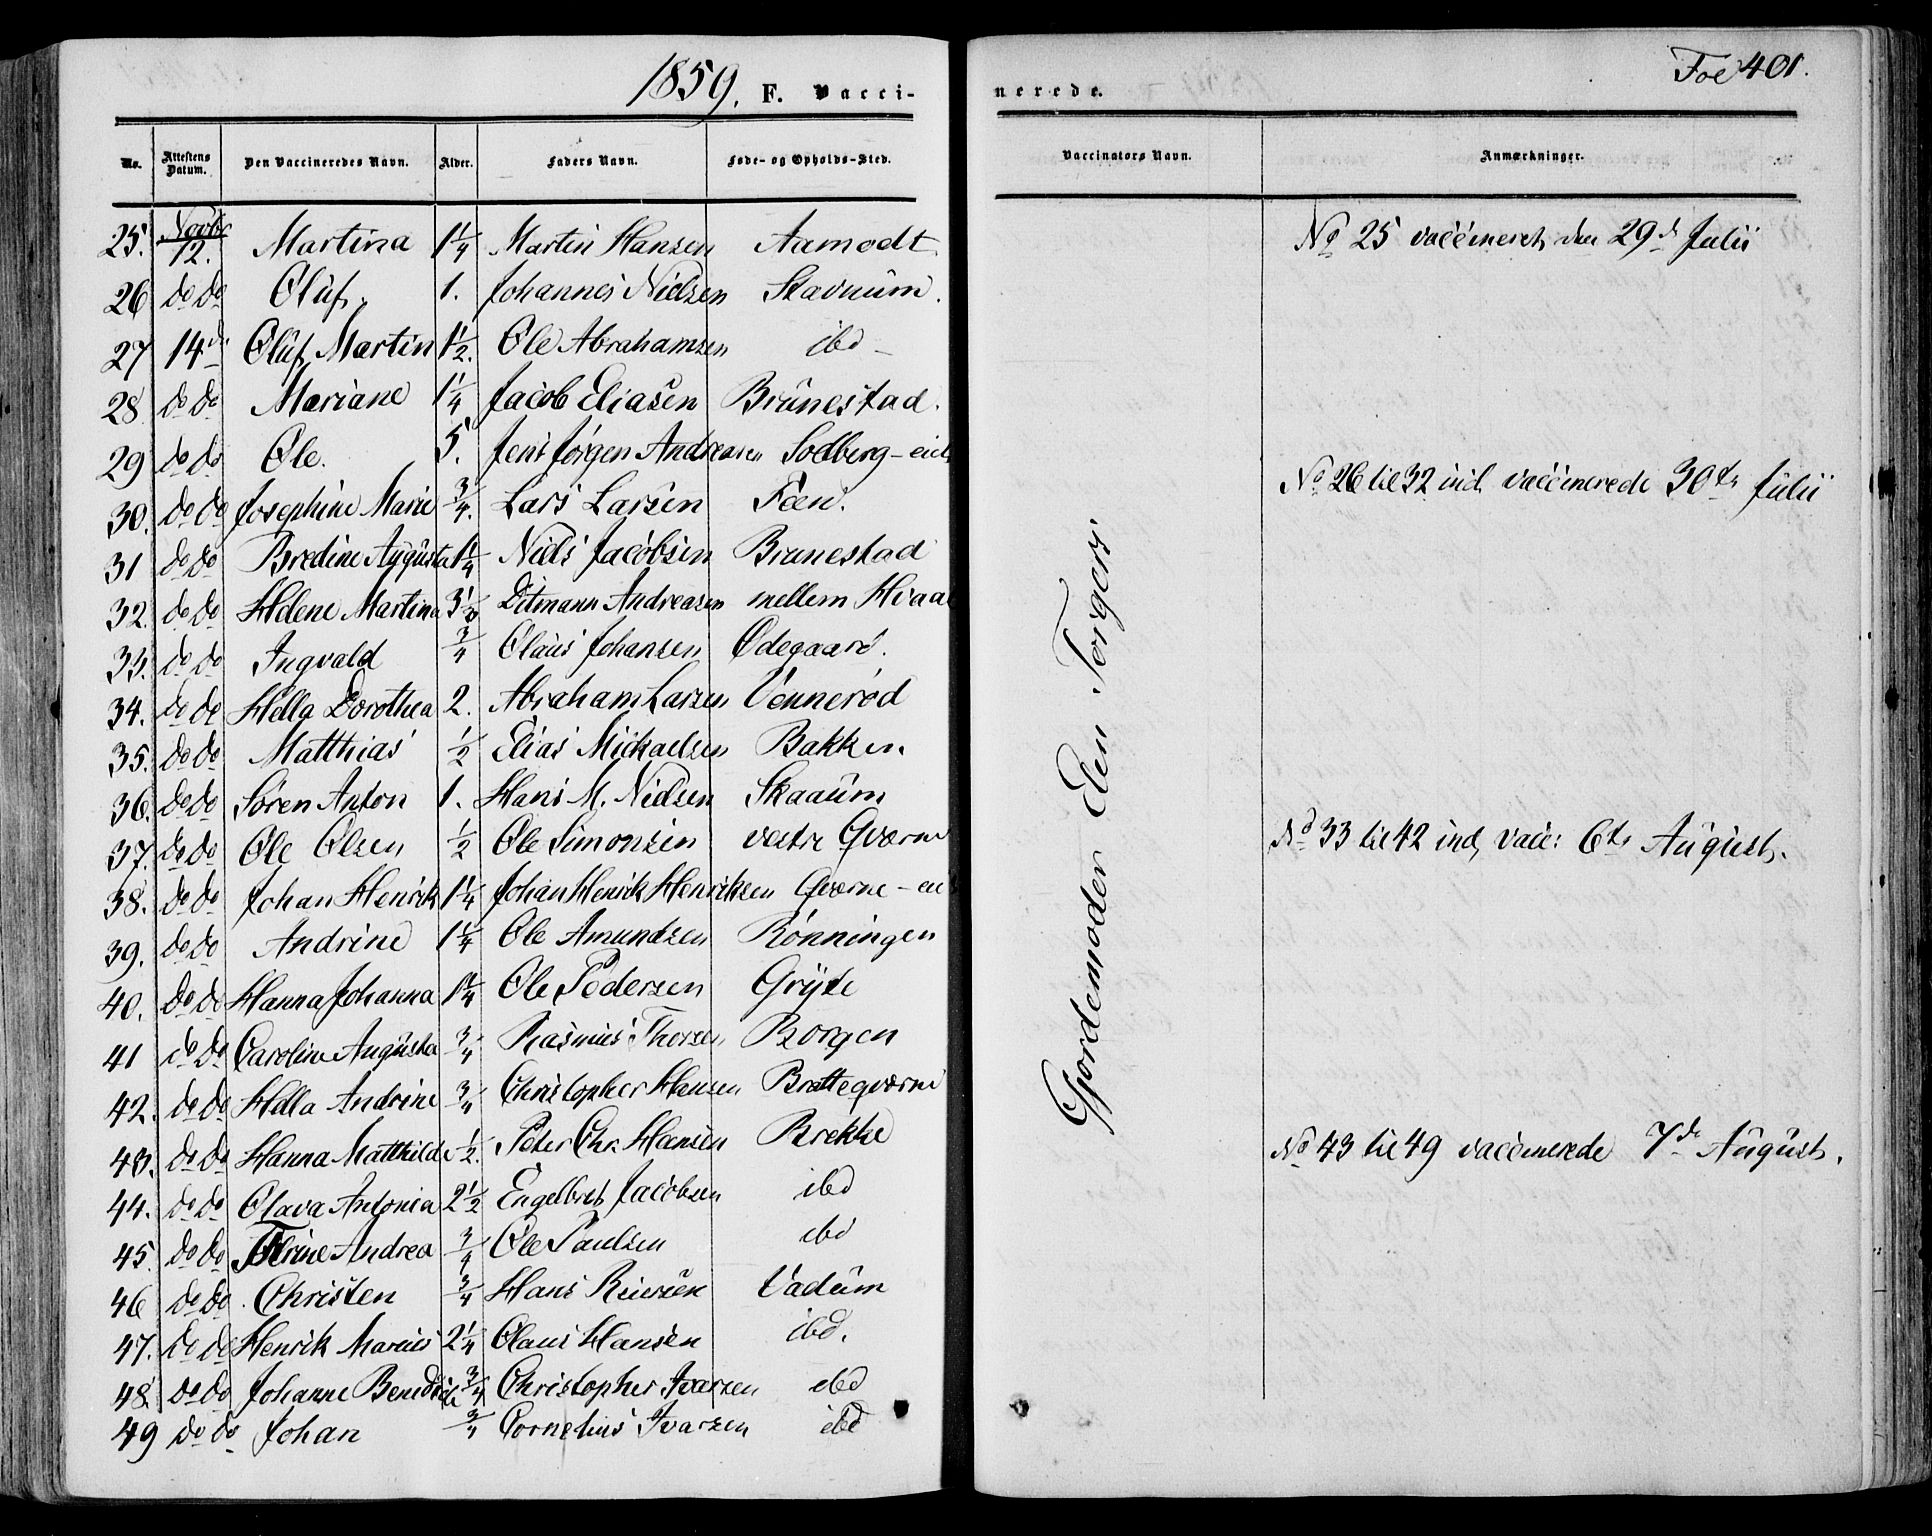 1859. F. Vacci-
No. Attestens Datum. Den Vaccineredes Navn. Alder. Faders Navn. Føde- og Opholds-Sted.
25. Novbr 12. Martina 1 1/4 Martin Hansen Aamodt
26 do do Oluf 1. Johannes Nielsen Skavuum.
27 14de Oluf Martin 1 1/2. Ole Abrahamsen ibd
28 do do Mariane 1 1/4 Jacob Eliasen Brunestad.
29 do do Ole. 5. Jens Jørgen Andreasen Solberg-eie
30. do do Josephine Marie 3/4. Lars Larsen Feen.
31 do do Bredine Augusta 1 1/4 Niels Jacobsen Brunestad
32. do do Helene Martina Ditmann Andreasen mellem Hvaal
33. do do Ingvald 3/4 Olaus Johansen Ødegaard.
34. do do Hella Dorothea 2. Abraham Larsen Vennerød
35. do do Matthias 1/2 Elias Mickaelsen Bakken
36. do do Søren Anton 1. Hans M. Nielsen Skaaum
37. do do Ole Olsen 1/2 Ole Simonsen vestre Gværne
38. do do Johan Henrik 1 1/4 Johan Henrik Henriksen Gværne-ei
39. do do Andrine 1 1/4 Ole Amundsen Rønningen
40. do do Hanna Johanna 1 1/4 Ole Pedersen Gryte
41 do do Caroline Augusta 3/4 Rasmus Thorsen Borgen
42. do do Hella Andrine 3/4 Christopher Hansen Bratteqværne
43. do do Hanna Matthilde 1/2. Peter Chr. Hansen Brekke
44. do do Olava Antonia 2 1/2 Engelbret Jacobsen ibd
45. do do Andrea 3/4 Ole Paulsen ibd
46 do do Christen 3/4 Hans Reiersen Vadum
47. do do Henrik Marius 2 1/4 Olaus Hansen ibd.
48. do do Johanne Benedicte 3/4 Christopher Ivarsen ibd
49 do do Johan 3/4 Cornelius Ivarsen ibd
Fol 401.
nerede.
Vaccinators Navn. Anmærkninger.
Gjordemoder Elen Torgers
No 25 vaccineret den 29de Julii
No 26 til 32 incl. vaccinerede 30te Julii
No 33 til 42 incl, vacc: 6te August.
No 43 til 49 vaccinerede 7de August.